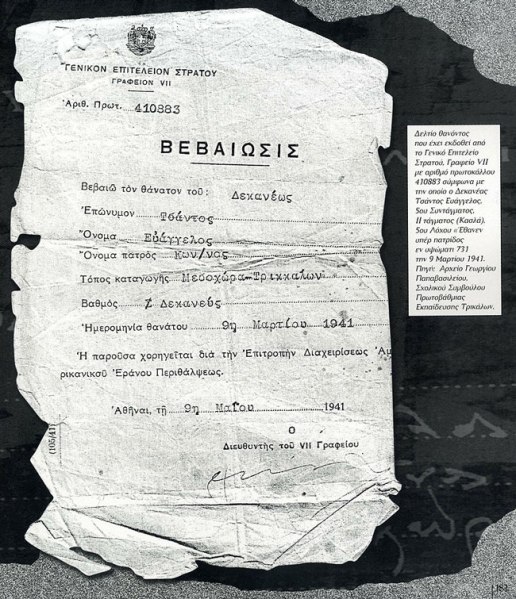 ΓΕΝΙΚΟΝ ΕΠΙΤΕΛΕΙΟΝ ΣΤΡΑΤΟΥ
ΓΡΑΦΕΙΟΝ VII
Ἀριθ. Πρωτ. 410883
ΒΕΒΑΙΩΣΙΣ
Βεβαιῶ τὸν θάνατον τοῦ: Δεκανέως
Ἐπώνυμον Τσάντος
Ὄνομα Εὐάγγελος
Ὄνομα πατρὸς Κων/νος
Τόπος καταγωγῆς Μεσοχώρα-Τρικκάλων
Βαθμὸς Δεκανεύς
Ἡμερομηνία θανάτου 9η Μαρτίου 1941
Ἡ παροῦσα χορηγεῖται διὰ τὴν Ἐπιτροπὴν Διαχειρίσεως Ἀμ
ρικανικοῦ Ἐράνου Περιθάλψεως.
Ἀθῆναι, τῇ 9η Μαΐου 1941
Ὁ
Διευθυντὴς τοῦ VII Γραφείου
(105/41)
Δελτίο θανόντος
που έχει εκδοθεί από
το Γενικό Επιτελείο
Στρατού, Γραφείο VII
με αριθμό πρωτοκόλλου
410883 σύμφωνα με
την οποίο ο Δεκανέας
Τσάντος Ευάγγελος,
5ου Συντάγματος,
ΙΙ τάγματος (Κασλά),
5ου Λόχου «Έθανεν
υπέρ πατρίδος
εν υψώματι 731
την 9 Μαρτίου 1941.
Πηγή: Αρχείο Γεωργίου
Παπαβασιλείου,
Σχολικού Συμβούλου
Πρωτοβάθμιας
Εκπαίδευσης Τρικάλων.